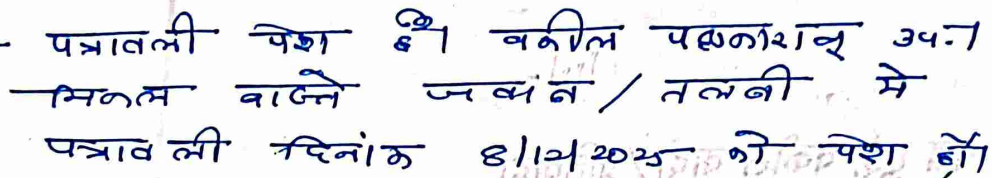 - पत्रावली पेश है। वकील पक्षकारान् उप.।
मिसल वास्ते जवाब / तलबी मे
पत्रावली दिनांक 8/12/2025 को पेश हो।